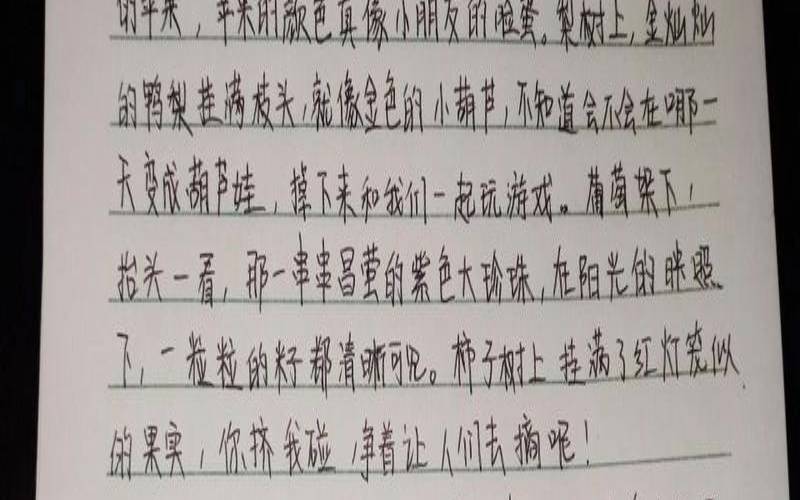 的苹果，苹果的颜色真像小朋友的脸蛋。梨树上，金灿灿
的鸭梨挂满枝头，就像金色的小葫芦，不知道会不会在哪一
天变成葫芦娃，掉下来和我们一起玩游戏。葡萄架下，
抬头一看，那一串串晶莹的紫色大珍珠，在阳光的映照
下，一粒粒的籽都清晰可见。柿子树上挂满了红灯笼似
的果实，你挤我碰 争着让人们去摘呢！